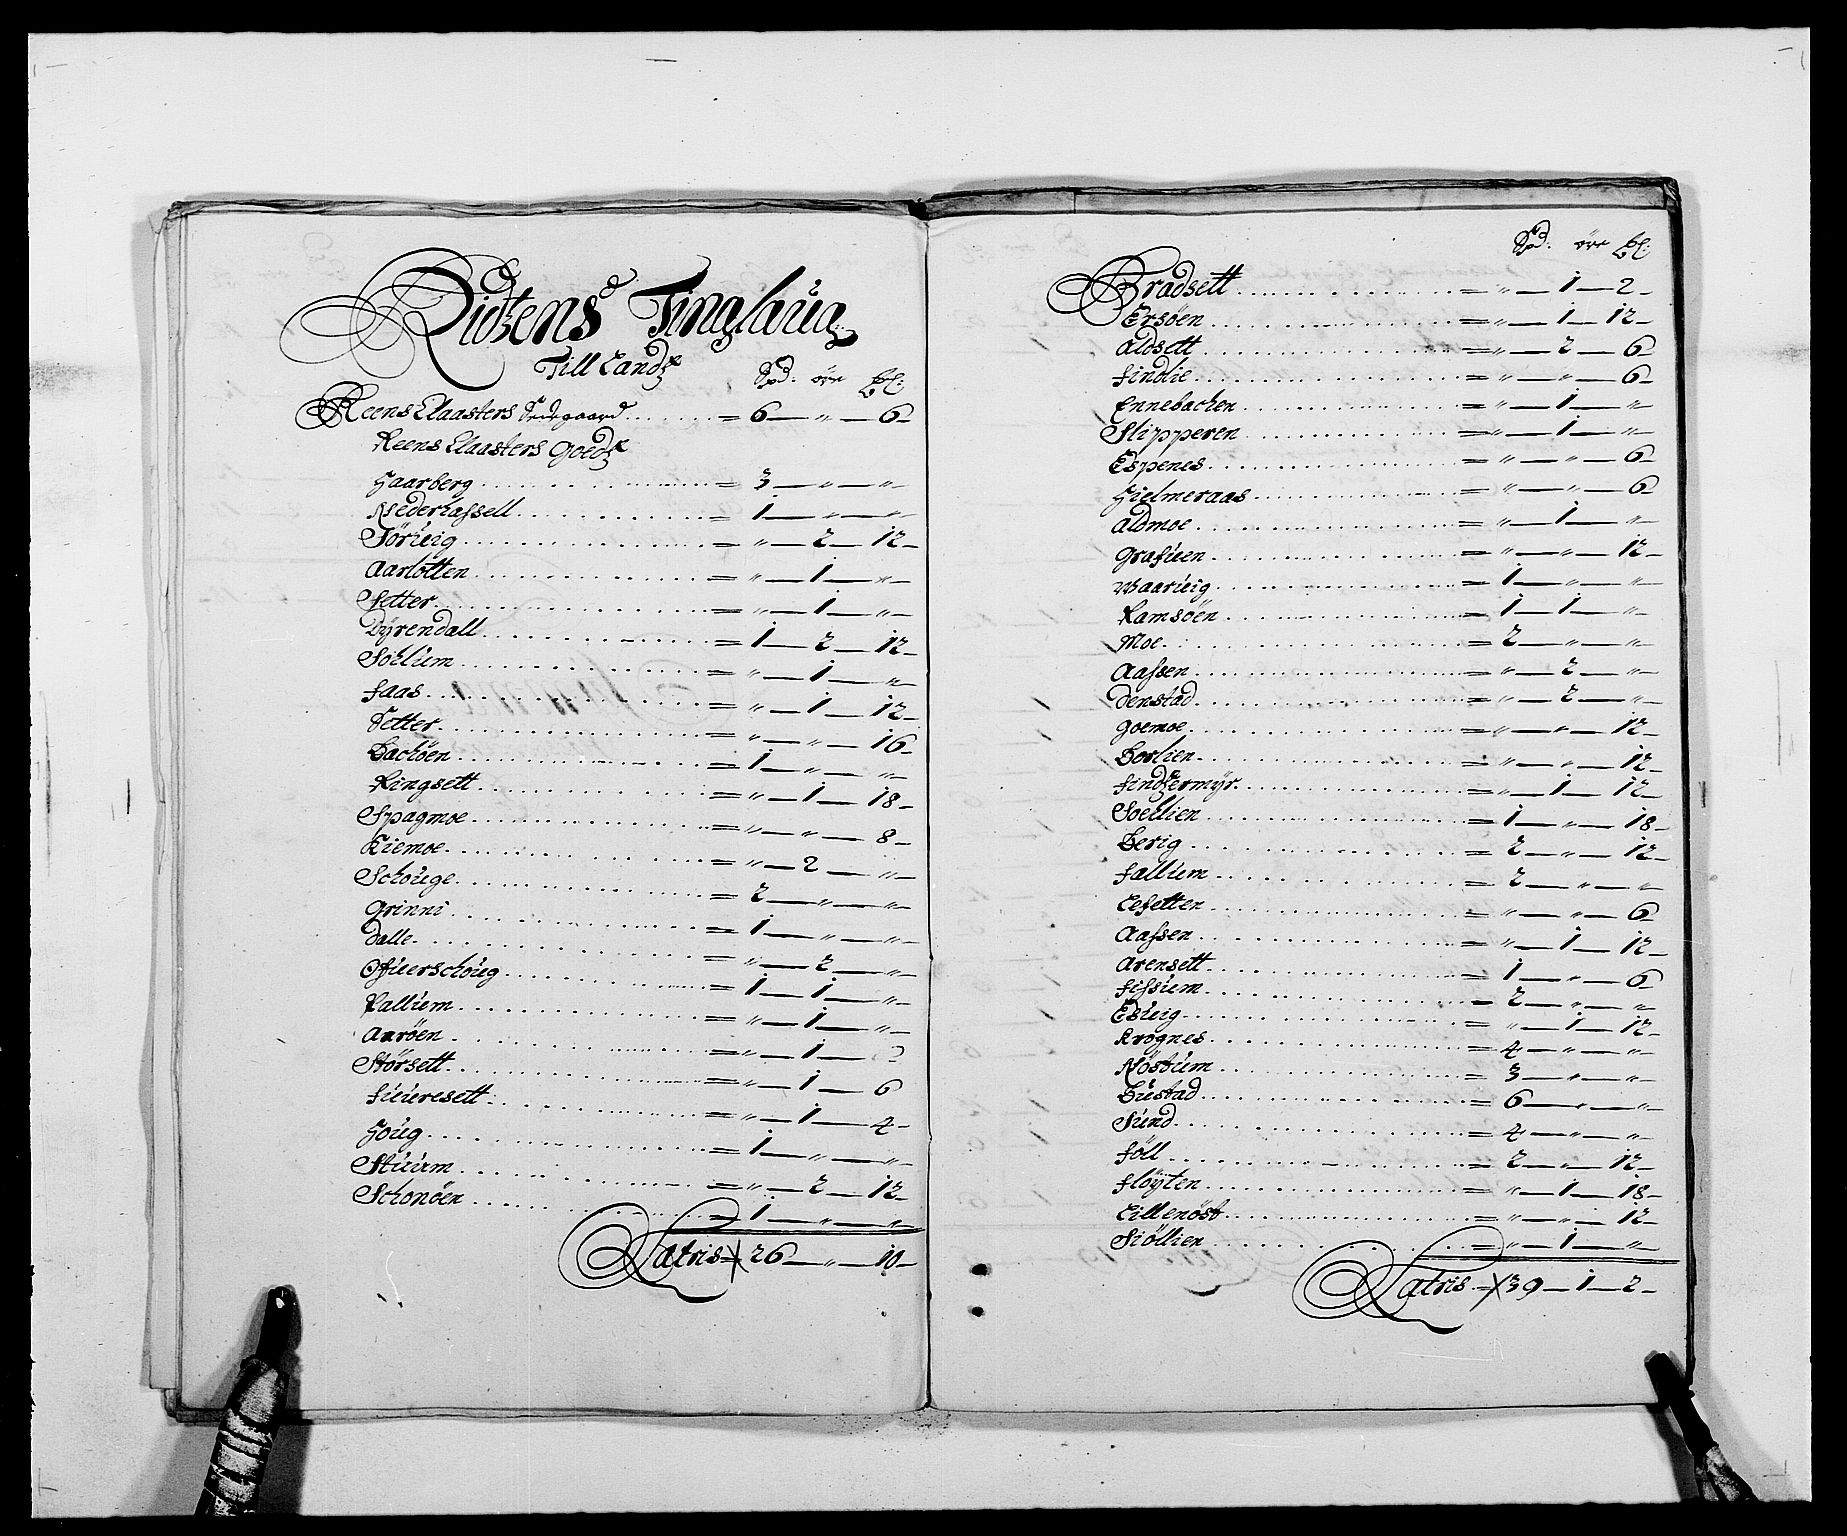 Ridtens Tinglaug
Till Landz
Spd: øre ßl:
Reens Claasters Sædegaard = 6 — " — 6
Reens Claasters Goedz
Haarberg = 3 — " — "
Nederhassell = 1 — " — "
Törüig = " — 2 — 12
Aarlotten = " — 1 — "
Setter = " — 1 — "
Dÿrendall = 1 — 2 — 12
Solüem = " — 1 — "
Saas = " — 1 — 12
Setter = " — " — 16
Bachöen = 1 — " — "
Ringsett = " — 1 — 18
Spagmoe = " — " — 8
Kiemoe = " — 2 — "
Schouge = 2 — " — "
Grinni = 1 — " — "
Dalle = " — 2 — "
Ofüerschoüg = 1 — 1 — "
Rallüem = " — 1 — "
Aaröen = " — 1 —
Störsett = " — 1 — 6
Füüeresett = " — 1 — 4
Hoüg = 1 — " — "
Stüürm = " — 2 — 12
Schonöen = 1 — " — "
Latris 26 — " — 10
Spd: øre ßl:
Bradsett = " — 1 — 2
Ersöen = " — 1 — 12
Aldsett = " — 2 — 6
Findlie = " — " — 6
Ennebachen = " — 1 — "
Slipperen = " — 1 — "
Espenes = " — " — 6
Hielmeraas = " — " — 6
Aldmoe = " — 1 — "
Grafüen = " — " — 12
Waarüig = 1 — " — "
Ramsöen = 1 — 1 — "
Moe = 2 — " — "
Aassen = " — 2 — "
Denstad = " — 2 — "
Goemoe = " — " — 12
Borlien = " — " — 12
Findzermÿr = " — 1 — 12
Soellien = 1 — " — 18
Berig = 2 — " — 12
Fallüem = 2 — " — "
Lefetten = " — " — 6
Aassen = " — 1 — 12
Arensett = 1 — " — 6
Fissüem = 2 — " — "
Esüig = " — 1 — 12
Krognes = 4 — " — "
Nöstüm = 3 — " — "
Büestad = 6 — " — "
Sünd = 4 — " — "
Föll = 2 — " — 12
Flöÿten = " — 1 — 18
Lillenöst = " — " — 12
Siöllien = " — 1 — "
Latris 39 — 1 — 2